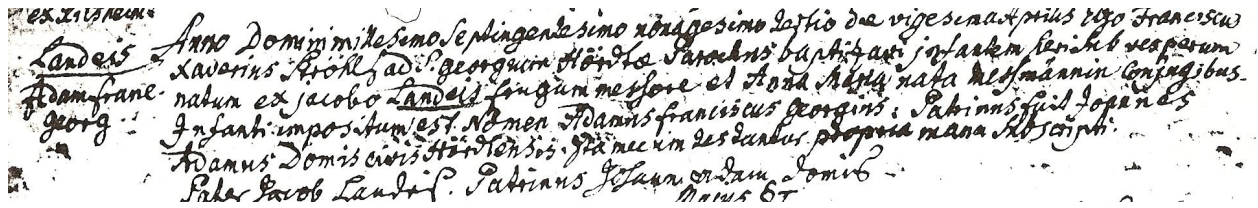 ex Rilsheim:
Landeis
Adam franc
georg
Anno Domini millesimo Septingentesimo nonagesimo tertio die vigesima Aprilis Ego Franciscus
Xaverius Ströhl ad S. georgium Hördtæ Parochus baptizavi infantem heri sub vesperum
natum ex jacobo Landeis frugum messore et Anna Maria nata Messmännin Conjugibus.
Infanti impositum est Nomen Adamus franciscus georgius; Patrinus fuit Joannes
Adamus Domis civis Hördtensis. Ita mecum testantur propria manu subscripti.
Pater Jacob Landeis. Patrinus Johann adam Domis